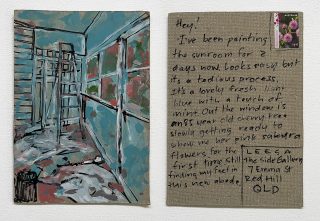 Hey!
I've been painting
the sunroom for 2
days now. Looks easy but
its a tedious process.
It's a lovely fresh light
blue with a touch of
mint. Out the window is
an 85 year old cherry tree
slowly getting ready to
show me her pink
flowers for the
first time. Still
finding my feet in
this new abode.
LEESA
The Side Gallery
7 Emma St
Red Hill
QLD